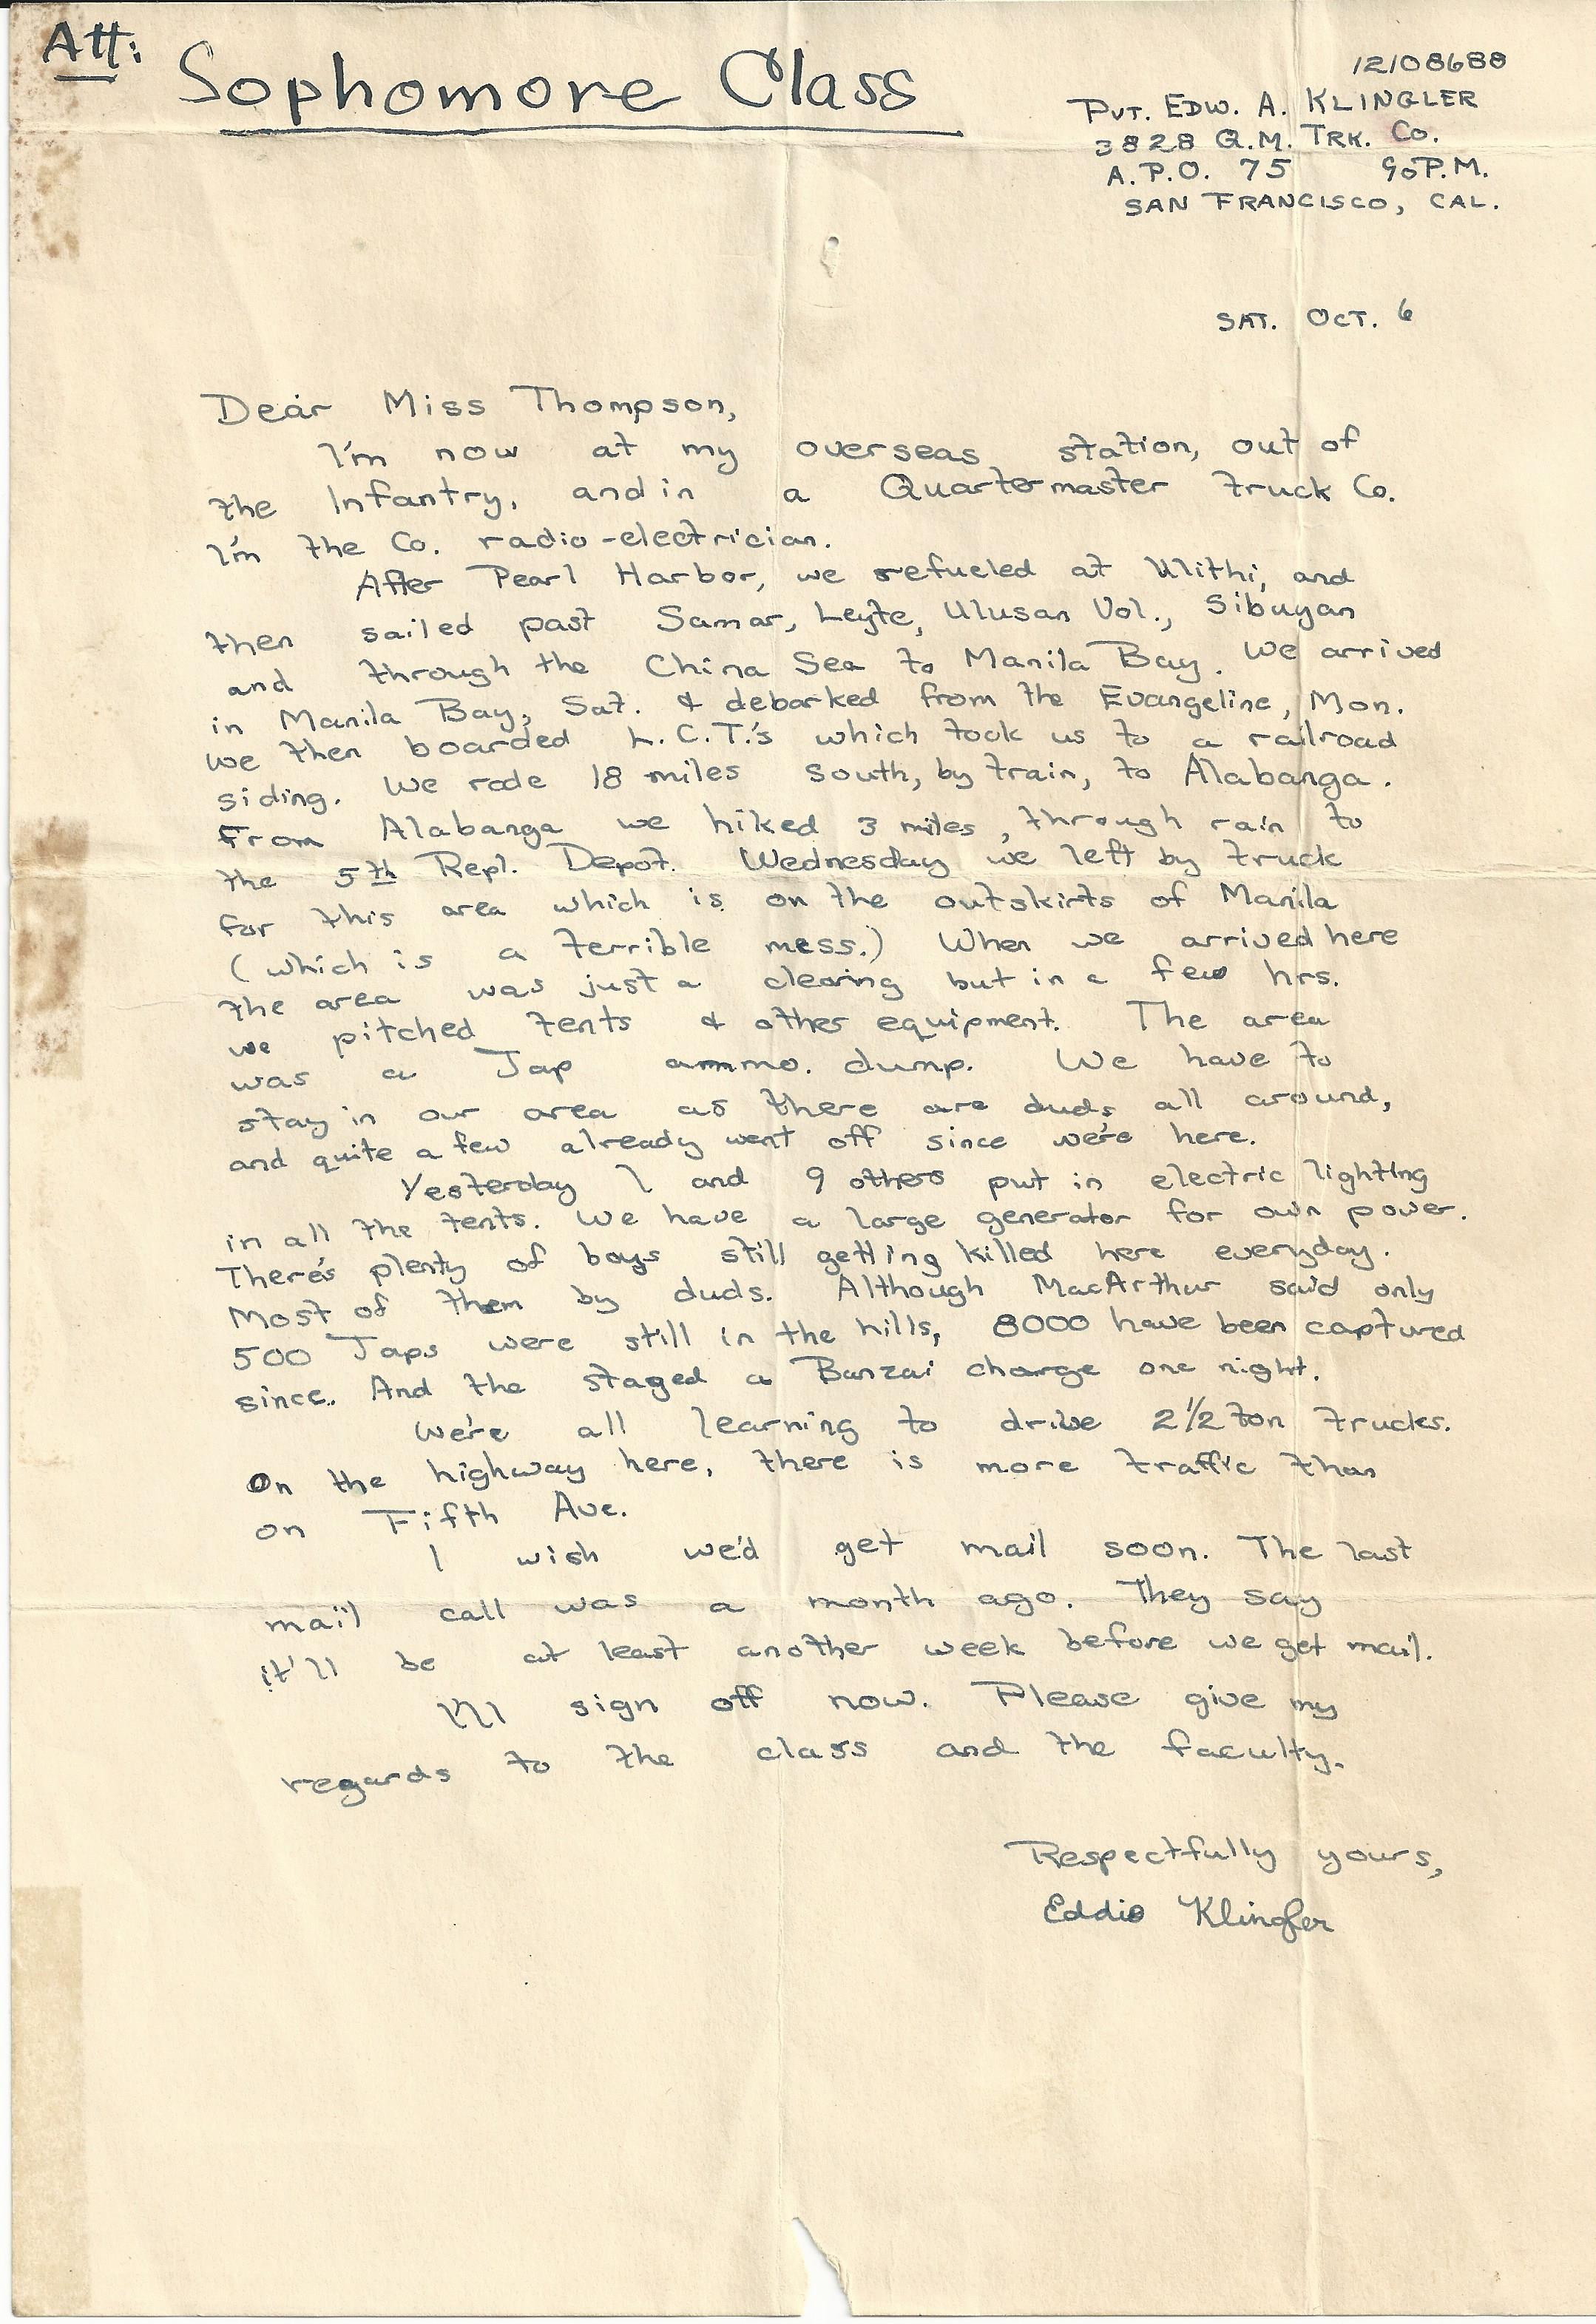 Att: Sophomore Class
12108688
PVT. EDW. A. KLINGLER
3828 Q.M. TRK. Co.
A.P.O. 75 % P.M.
SAN FRANCISCO, CAL.
SAT. OCT. 6
Dear Miss Thompson,
I'm now at my overseas station, out of
the Infantry, and in a Quartermaster truck Co.
I'm the Co. radio-electrician.
After Pearl Harbor, we refueled at Ulithi, and
then sailed past Samar, Leyte, Ulusan Vol., Sibuyan
and through the China Sea to Manila Bay. We arrived
in Manila Bay, Sat. & debarked from the Evangeline, Mon.
we then boarded L.C.T.'s which took us to a railroad
siding. We rode 18 miles south, by train, to Alabanga.
From Alabanga we hiked 3 miles, through rain to
the 5th Repl. Depot. Wednesday we left by truck
for this area which is on the outskirts of Manila
(which is a terrible mess.) When we arrived here
the area was just a clearing but in a few hrs.
we pitched tents & other equipment. The area
was a Jap ammo. dump. We have to
stay in our area as there are duds all around,
and quite a few already went off since we're here.
Yesterday I and 9 others put in electric lighting
in all the tents. We have a large generator for own power.
There's plenty of boys still getting killed here everyday.
Most of them by duds. Although MacArthur said only
500 Japs were still in the hills, 8000 have been captured
since. And the staged a Banzai charge one night.
We're all learning to drive 2 1/2 ton trucks.
On the highway here, there is more traffic than
on Fifth Ave.
I wish we'd get mail soon. The last
mail call was a month ago. They say
it'll be at least another week before we get mail.
I'll sign off now. Please give my
regards to the class and the faculty.
Respectfully yours,
Eddie Klingler